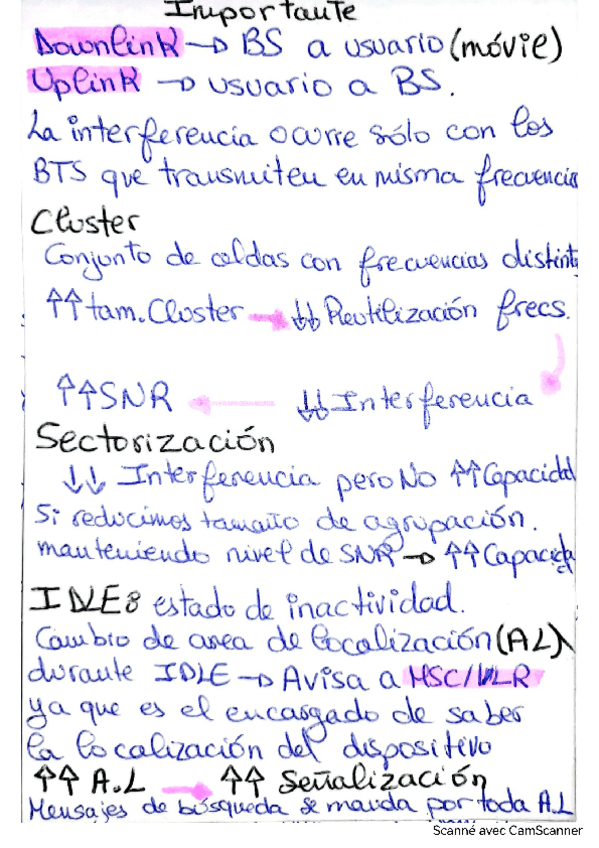 Importante
Downlink → BS a usuario (móvil)
Uplink → usuario a BS.
La interferencia ocurre sólo con los
BTS que transmiten en misma frecuencia
Cluster
Conjunto de celdas con frecuencias distint
↑↑ tam. Cluster → ↓↓ Reutilización frecs.
↑↑ SNR ← ↓↓ Interferencia
Sectorización
↓↓ Interferencia pero No ↑↑ Capacidad
Si reducimos tamaño de agrupación.
manteniendo nivel de SNR → ↑↑ Capacida
IDLE: estado de inactividad.
Cambio de area de localización (AL)
durante IDLE → Avisa a MSC/VLR
ya que es el encargado de saber
la localización del dispositivo
↑↑ A.L → ↑↑ Señalización
Mensajes de búsqueda se manda por toda A.L
Scanné avec CamScanner